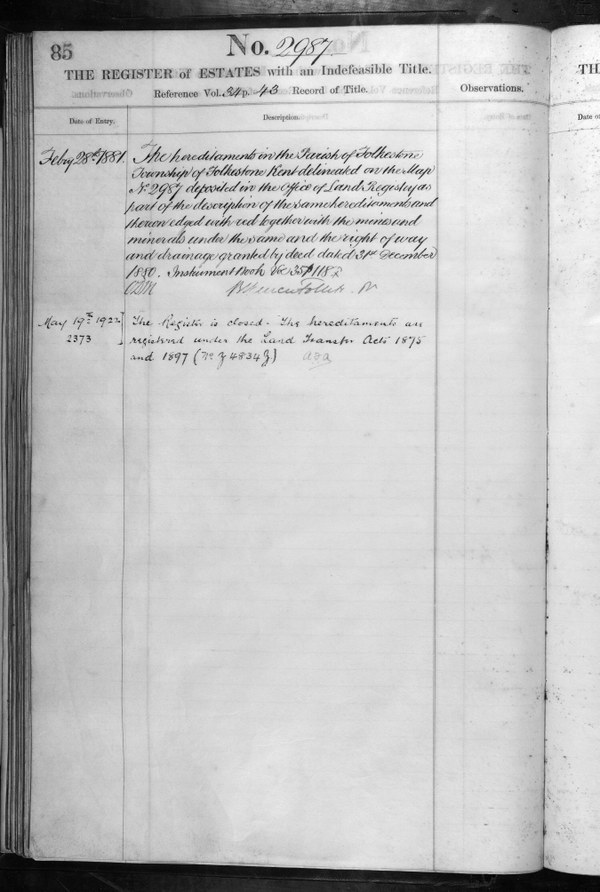 85
No. 2987
THE REGISTER of ESTATES with an Indefeasible Title.
Reference Vol. 34 p. 43 Record of Title.
Observations.
Date of Entry.
Description.
Feby 28th 1881.
The hereditaments in the Parish of Folkestone
Township of Folkestone Kent delineated on the Map
No 2987 deposited in the Office of Land Registry as
part of the description of the same hereditaments and
thereon edged with red together with the mines and
minerals under the same and the right of way
and drainage granted by deed dated 31st December
1880. Instrument Book Vol 35 p 118
May 19th 1922
2373
The Register is closed. The hereditaments are
registered under the Land Transfer Acts 1875
and 1897 (No
THI
Date o